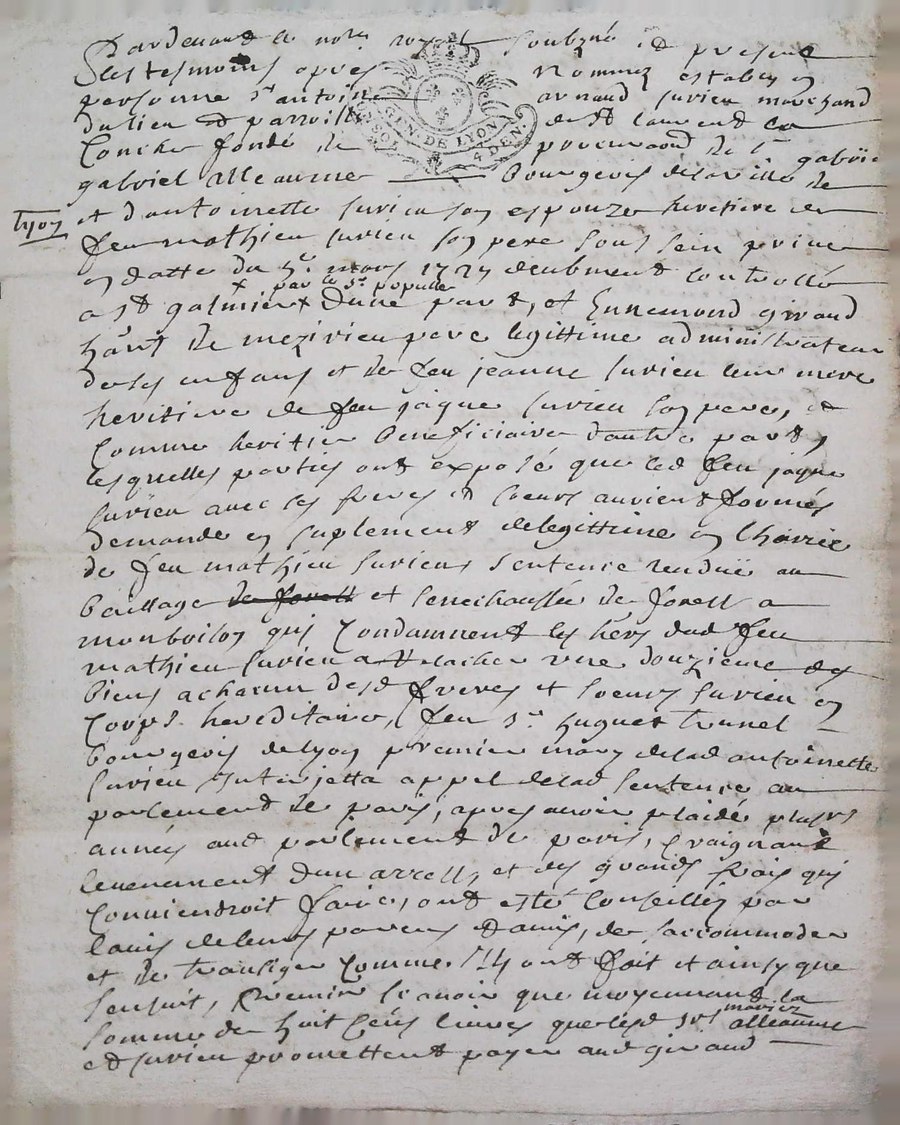 Pardevant le not.re royal soubzné et present
Les tesmoins apres nommez estably en
personne s.r antoine arnaud surieu marchand
du lieu et parroisse de st laurent la
Conche fondé de procuraõn de s.r gabriel
GEN. DE LYON
4 DEN.
gabriel alleaume bourgeois de la ville de
Lyon
et d'antoinette surieu son espouze heretiere de
feu mathieu surieu son pere sous sein privé
en datte du 5.e mars 1727 deubment controllé
par le s.r populle
a st galmier d'une part, et Ennemond giraud
hânt de mezirieu pere legittime administrateur
de ses enfans et de feu jeanne surieu leur mere
heritiere de feu jaque surieu son pere, et
comme heritier beneficiaire d'autre part,
lesquelles parties ont exposé que led feu jaque
surieu avec ses freres et soeurs auroient formés
demande en suplement de legittime en l'hoirie
de feu mathieu surieu, sentence rendue au
baillage de forest et senechaussée de forest a
monbrison qui condamnent les hers dud feu
mathieu surieu a relacher une douzieme des
biens a chacun desd freres et soeurs surieu en
corps hereditaire, feu s.r hugues trunel
bourgeois de lyon premier mary de lad antoinette
surieu interjetta appel de lad sentence au
parlement de paris, apres avoir plaidé plusrs
années aud parlement de paris, craignant
l'evenement d'un arrest, et des grands frais qu'il
conviendroit faire, ont esté conseillés par
l'avis de leurs parens et amis, de s'accommoder
et de transiger comme ils ont fait et ainsy que
s'ensuit, Premier sçavoir que moyennant la
somme de huit cens livres que lesd srs mariez alleaume
et surieu promettent payer aud giraud